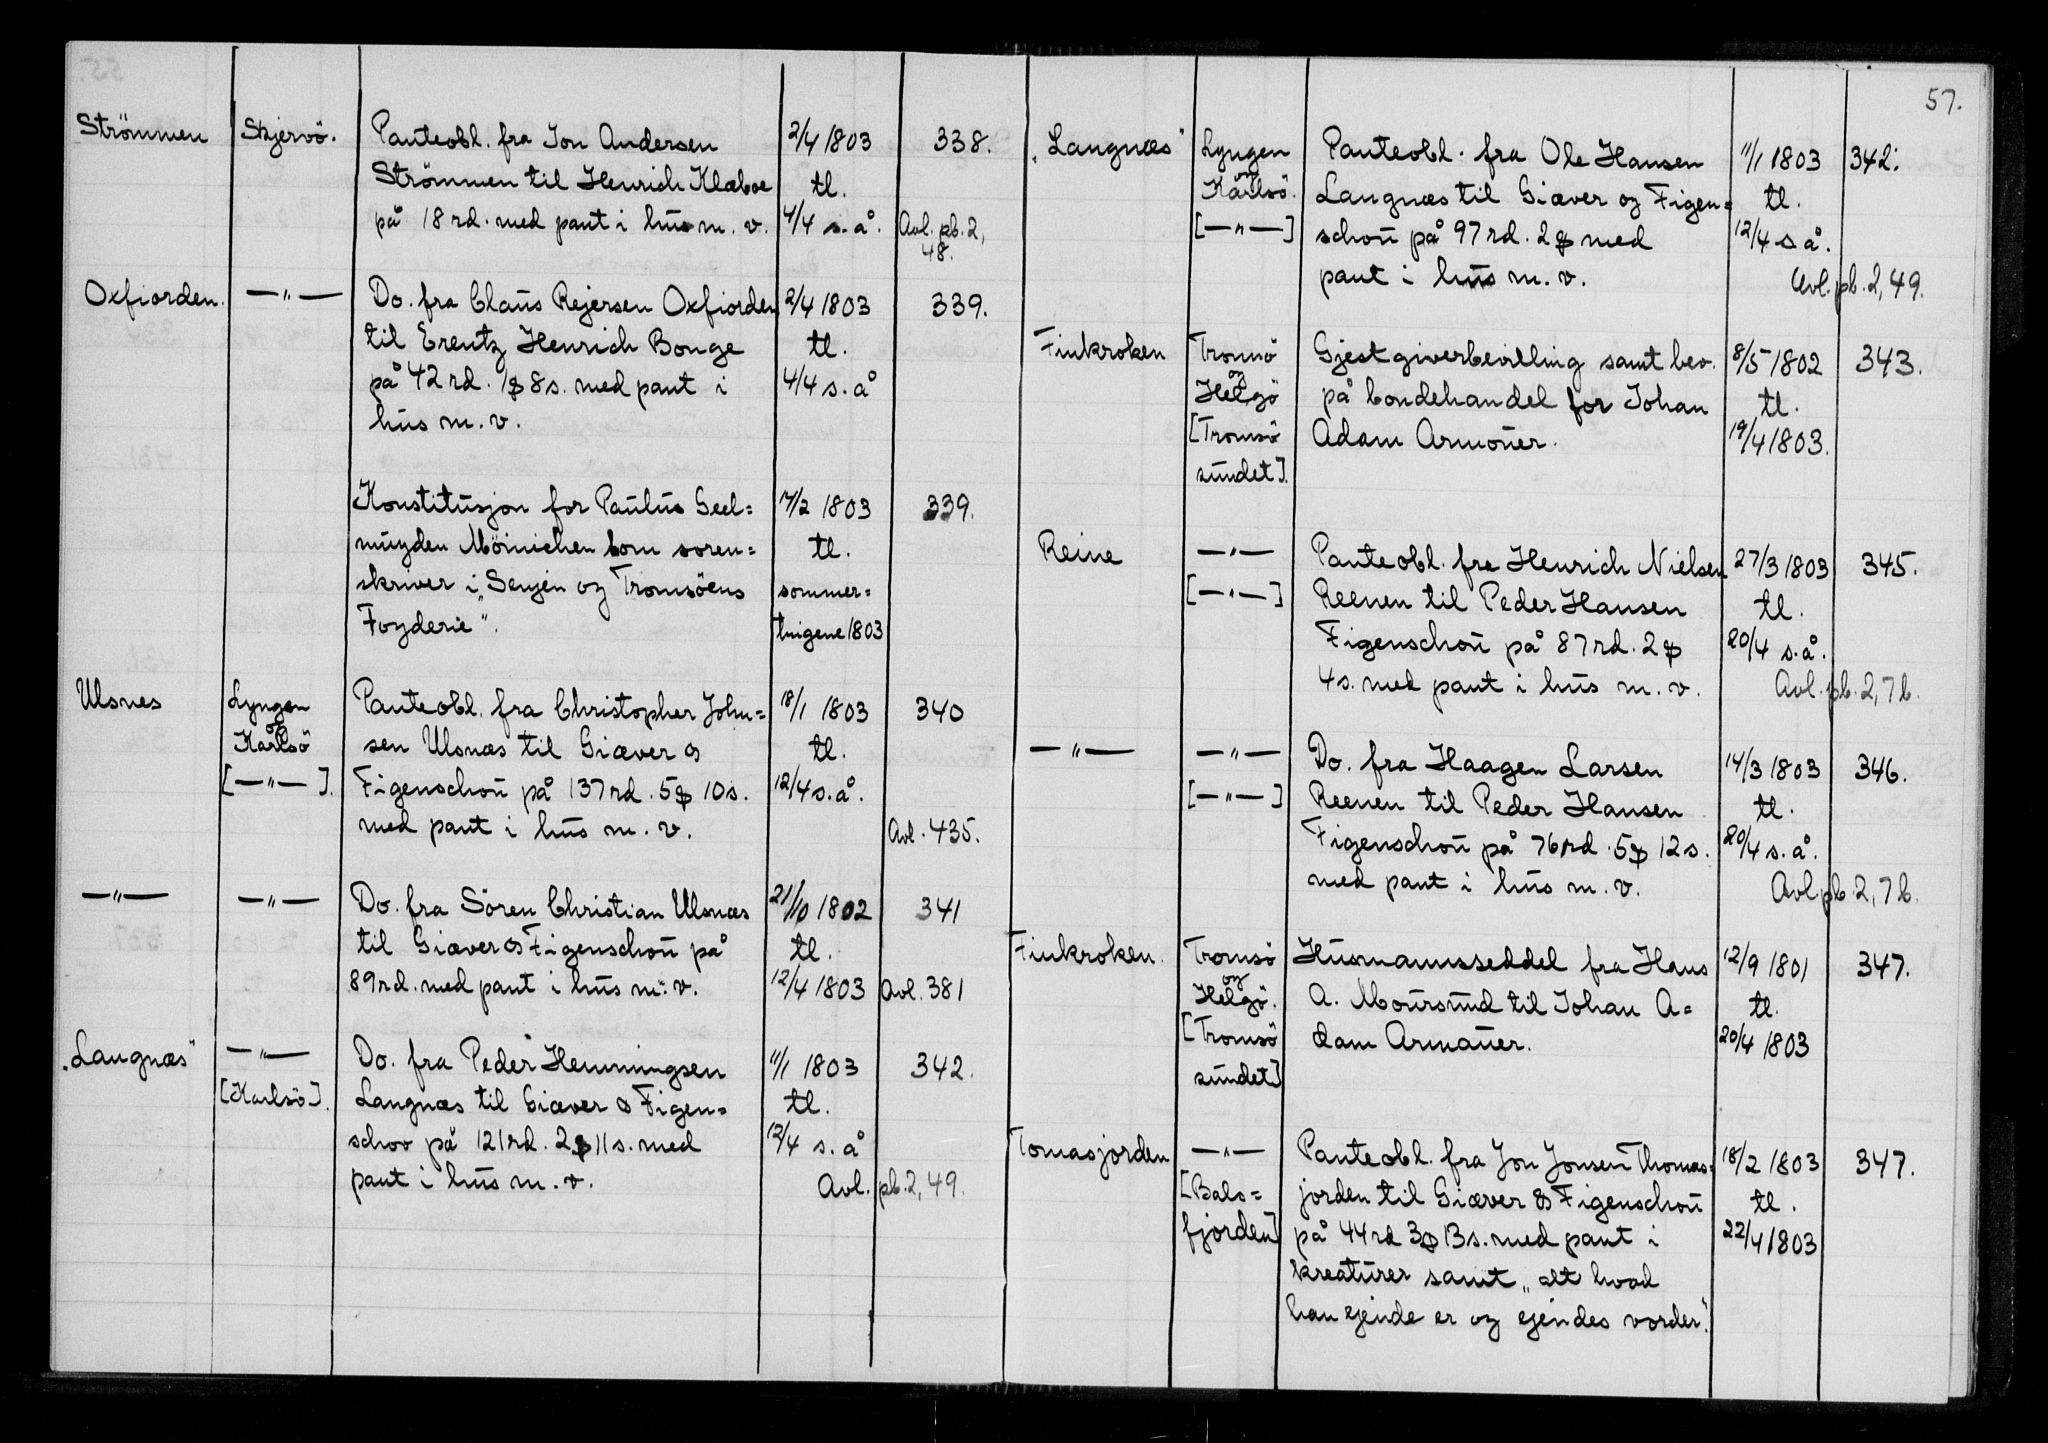 57.
Strömmen Skjervö. Panteobl. fra Jon Andersen 2/4 1803 338.
Strömmen til Henrich Klæboe tl.
på 18 rd. med pant i hus m. v. 4/4 s. å. Avl. pb. 2,
48.
Oxfiorden. —"— Do. fra Claus Rejersen Oxfiorden 2/4 1803 339.
til Erentz Henrich Bonge tl.
på 42 rd. 1 8 s. med pant i 4/4 s. å
hus m. v.
Konstitusjon for Paulus Geel= 1803 339.
muyden Möinichen som soren= tl.
skriver i „Senjen og Tromsöens sommer=
Foyderie". tingene 1803
Ulsnes Lyngen Panteobl. fra Christopher John= 18/1 1803 340
og
Karlsö sen Ulsnæs til Giæver & tl.
[—"—]. Figenschou på 137 rd. 5 10 s. 12/4 s. å.
med pant i hus m. v. Avl. 435.
—"— —"— Do. fra Sören Christian Ulsnæs 21/10 1802 341
til Giæver & Figenschou på tl.
89 rd. med pant i hus m. v. 12/4 1803 Avl. 381
„Langnæs" —"— Do. fra Peder Hemmingsen 11/1 1803 342.
[Karlsö]. Langnæs til Giæver & Figen= tl.
schov på 121 rd. 2 11 s. med 12/4 s. å
pant i hus m. v. Avl. pb. 2, 49.
„Langnæs" Lyngen Panteobl. fra Ole Hansen 11/1 1803 342.
og
Karlsö. Langnæs til Giæver og Figen= tl.
[—"—] schou på 97 rd. 2 med 12/4 s å.
pant i hus m. v. Avl. pb. 2, 49.
Finkroken Tromsö Gjestgiverbevilling samt bev. 8/5 1802 343.
og
Helgö på bondehandel for Johan tl.
[Tromsö Adam Armouer. 19/4 1803.
sundet].
Reine —"— Panteobl. fra Henrich Nielsen 27/3 1803 345.
[—"—] Reenen til Peder Hansen tl.
Figenschou på 87 rd. 2 20/4 s. å.
4 s. med pant i hus m. v. Avl. pb. 2, 7 b.
—"— —"— Do. fra Haagen Larsen 14/3 1803 346.
[—"—] Reenen til Peder Hansen tl.
Figenschou på 76 rd. 5 12 s. 20/4 s. å.
med pant i hus m. v. Avl. pb. 2, 7 b.
Finkroken. Tromsö Husmannsseddel fra Hans 12/9 1801 347.
og
Helgö. A. Moursund til Johan A= tl.
[Tromsö dam Armauer. 20/4 1803
sundet]
Tomasjorden —"— Panteobl. fra Jon Jonsen Thomas= 18/2 1803 347.
[Bals= jorden til Giæver & Figenschou tl.
fjorden] på 44 rd 3 13 s. med pant i 22/4 1803
kreaturer samt „alt hvad
han ejende er og ejendes vorder."